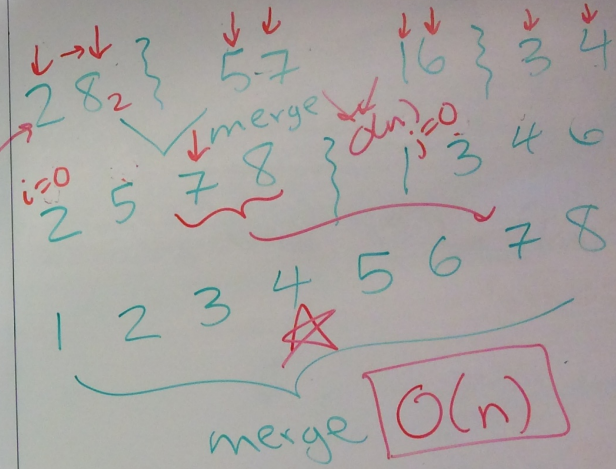 2 8 2 } 5 7 1 6 } 3 4
merge O(n)
i=0 j=0
2 5 7 8 } 1 3 4 6
1 2 3 4 5 6 7 8
merge O(n)